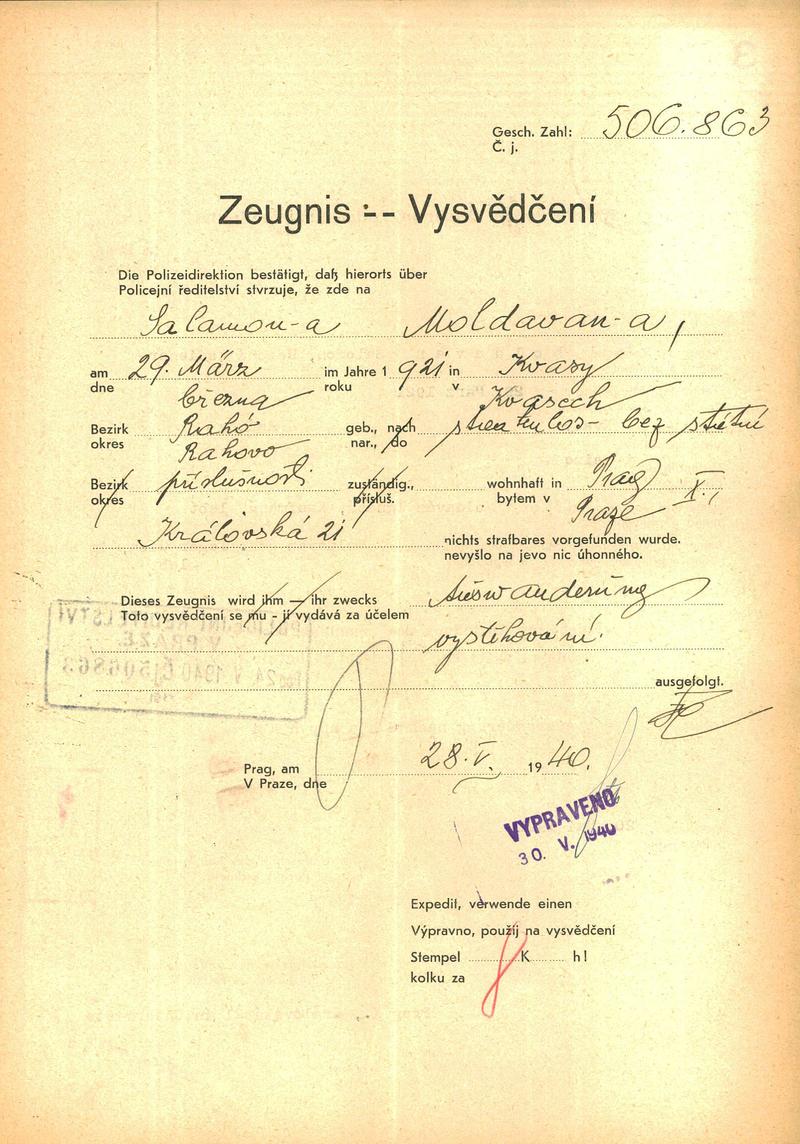 Gesch. Zahl: 506.863
Č. j.
Zeugnis -- Vysvědčení
Die Polizeidirektion bestätigt, daß hierorts über
Policejní ředitelství stvrzuje, že zde na
Salamon-a Moldavan-a,
am 29. März im Jahre 1 921 in Kvasy
dne března roku v Kvasech
Bezirk Rahó geb., nach staatenlos- bez státní
okres Rahovo nar., do
Bezirk příslušnosti zuständig., wohnhaft in Prag X.,
okres přísluš. bytem v Praze
Královská 21 nichts strafbares vorgefunden wurde.
nevyšlo na jevo nic úhonného.
Dieses Zeugnis wird ihm — ihr zwecks Auswanderung
Toto vysvědčení se mu - jí vydává za účelem
vystěhování.
ausgefolgt.
Prag, am 28. V. 1940.
V Praze, dne
VYPRAVENO
30. V. 1940
Expedit, verwende einen
Výpravno, použij na vysvědčení
Stempel K h!
kolku za